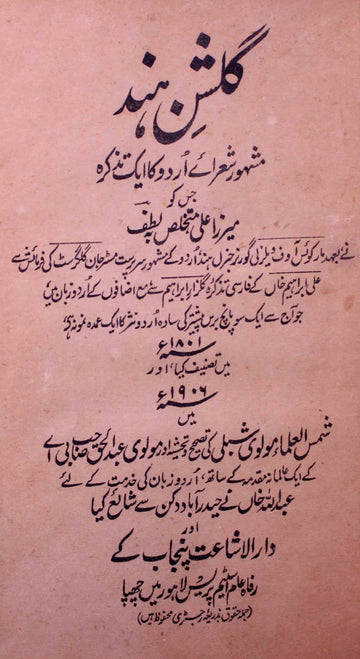 گلشنِ ہند
مشہور شعرائے اُردو کا ایک تذکرہ
جس کو
میرزا علی متخلص بہ لطف
نے بعہد مارکوئس آوف ویلزلی گورنر جنرل ہند اُردو کے مشہور سرپرست مسٹر جان گلکرسٹ کی فرمائش سے
علی ابراہیم خاں کے فارسی تذکرہ گلزار ابراہیم سے مع اضافوں کے اُردو زبان میں
جو آج سے ایک سو پانچ برس پیشتر کی سادہ اُردو نثر کا ایک عمدہ نمونہ ہے
سنہ ۱۸۰۱ء
میں تصنیف کیا، اور
سنہ ۱۹۰۶ء
میں
شمس العلماء مولوی شبلی کی تصحیح و تحشیہ اور مولوی عبدالحق صاحب بی اے
کے ایک عالمانہ مقدمہ کے ساتھ، اُردو زبان کی خدمت کے لئے
عبداللہ خاں نے حیدرآباد دکن سے شائع کیا
اور
دار الاشاعت پنجاب کے
رفاہ عام سٹیم پریس لاہور میں چھپا
(جملہ حقوق بذریعہ رجسٹری محفوظ ہیں)